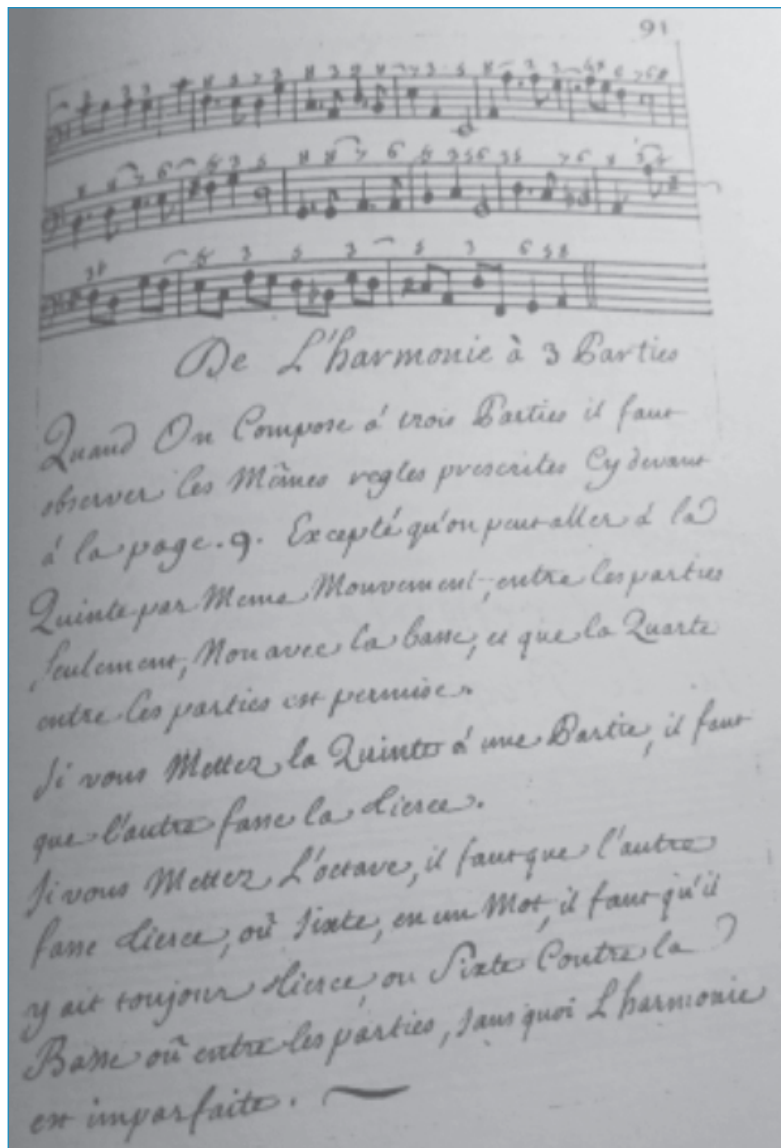 91
De L'harmonie à 3 Parties
Quand On Compose á trois Parties il faut
observer les Mêmes regles prescrites Cy devant
á la page. 9. Excepté qu'on peut aller á la
Quinte par Meme Mouvement, entre les parties
seulement, Non avec la basse, et que la Quarte
entre les parties est permise.
Si vous Mettez la Quinte á une Partie, il faut
que l'autre fasse la tierce.
Si vous Mettez L'octave, il faut que l'autre
fasse tierce, où sixte, en un Mot, il faut qu'il
y ait toujour tierce, ou Sixte Contre la
Basse où entre les parties, sans quoi L'harmonie
est imparfaite.